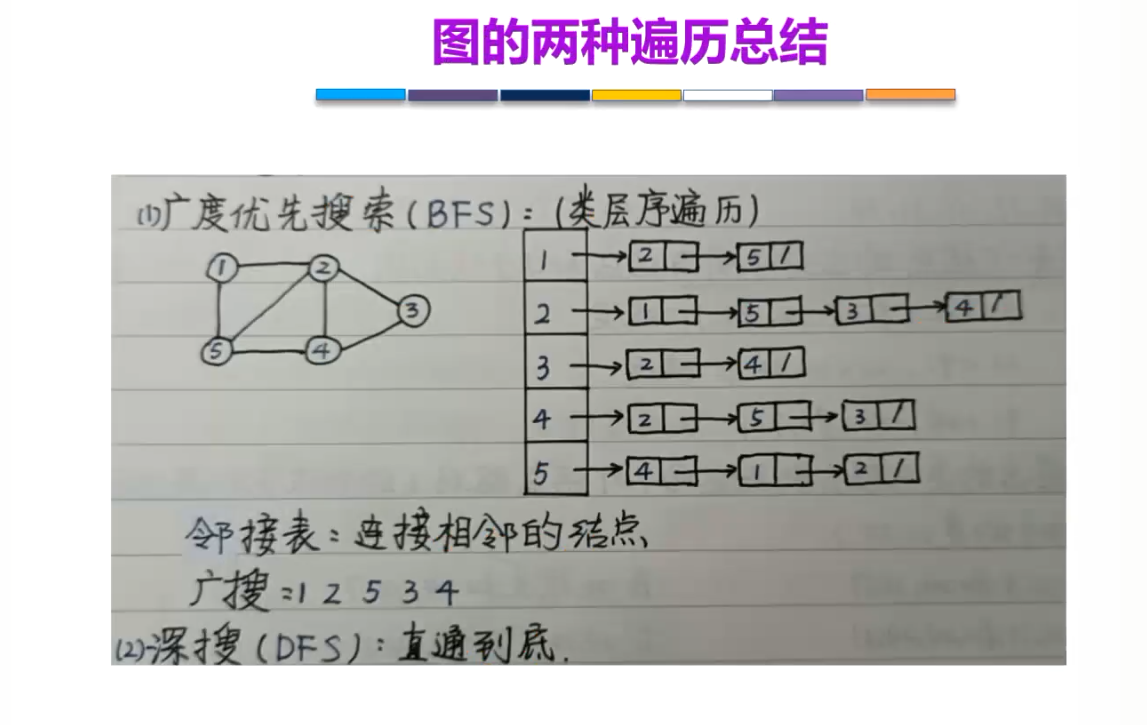 图的两种遍历总结
(1)广度优先搜索(BFS):(类层序遍历)
1 2 3 5 4
1 → 2 → 5 /
2 → 1 → 5 → 3 → 4 /
3 → 2 → 4 /
4 → 2 → 5 → 3 /
5 → 4 → 1 → 2 /
邻接表:连接相邻的结点
广搜:1 2 5 3 4
(2)深搜(DFS):直通到底.